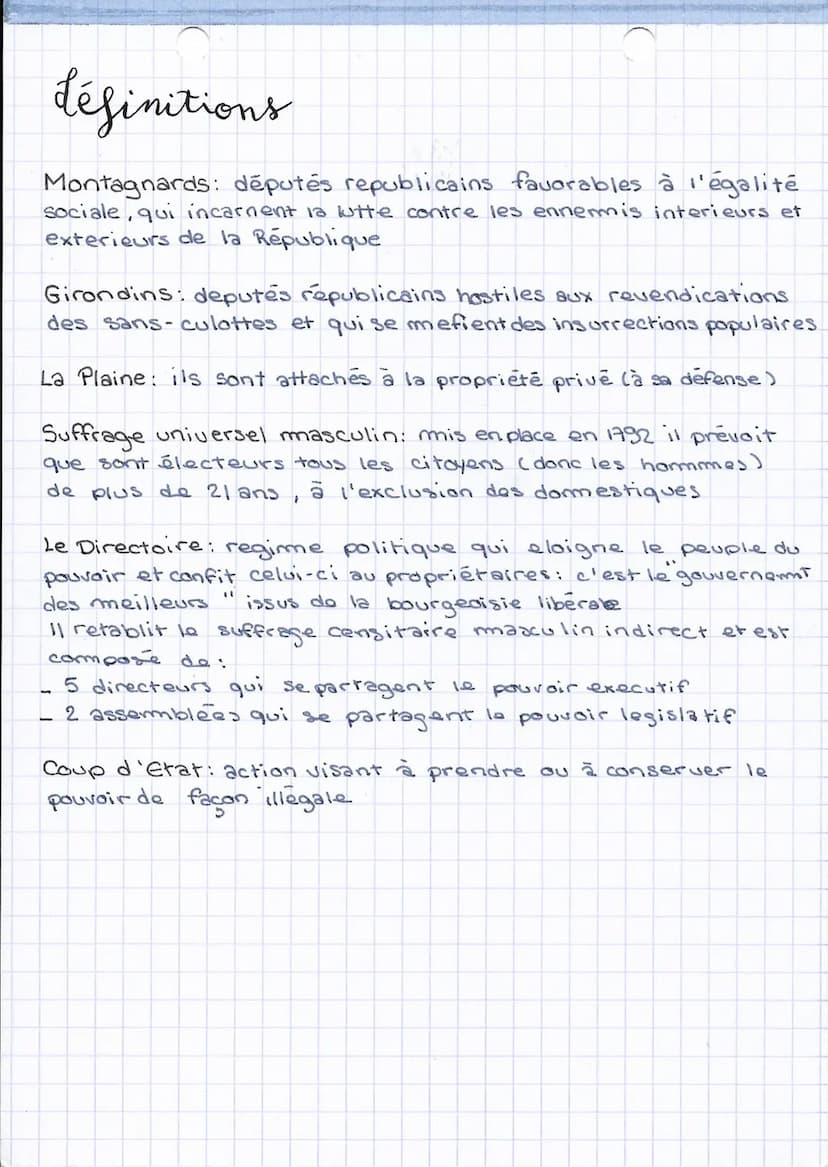 définitions
Montagnards: députés republicains favorables à l'égalité
sociale, qui incarnent la lutte contre les ennemis interieurs et
exterieurs de la République
Girondins: deputés républicains hostiles aux revendications
des sans-culottes et qui se mefient des insurrections populaires
La Plaine: ils sont attachés à la propriété privé (à sa défense)
Suffrage universel masculin: mis en place en 1792 il prévoit
que sont électeurs tous les citoyens (donc les hommes)
de plus de 21 ans, à l'exclusion des domestiques
Le Directoire: regime politique qui eloigne le peuple du
pouvoir et confit celui-ci au propriétaires: c'est le "gouvernement
des meilleurs" issus de la bourgeoisie libérale
Il retablit le suffrage censitaire masculin indirect et est
composé de:
- 5 directeurs qui se partagent le pouvoir executif
- 2 assemblées qui se partagent le pouvoir legislatif
Coup d'Etat: action visant à prendre ou à conserver le
pouvoir de façon illégale